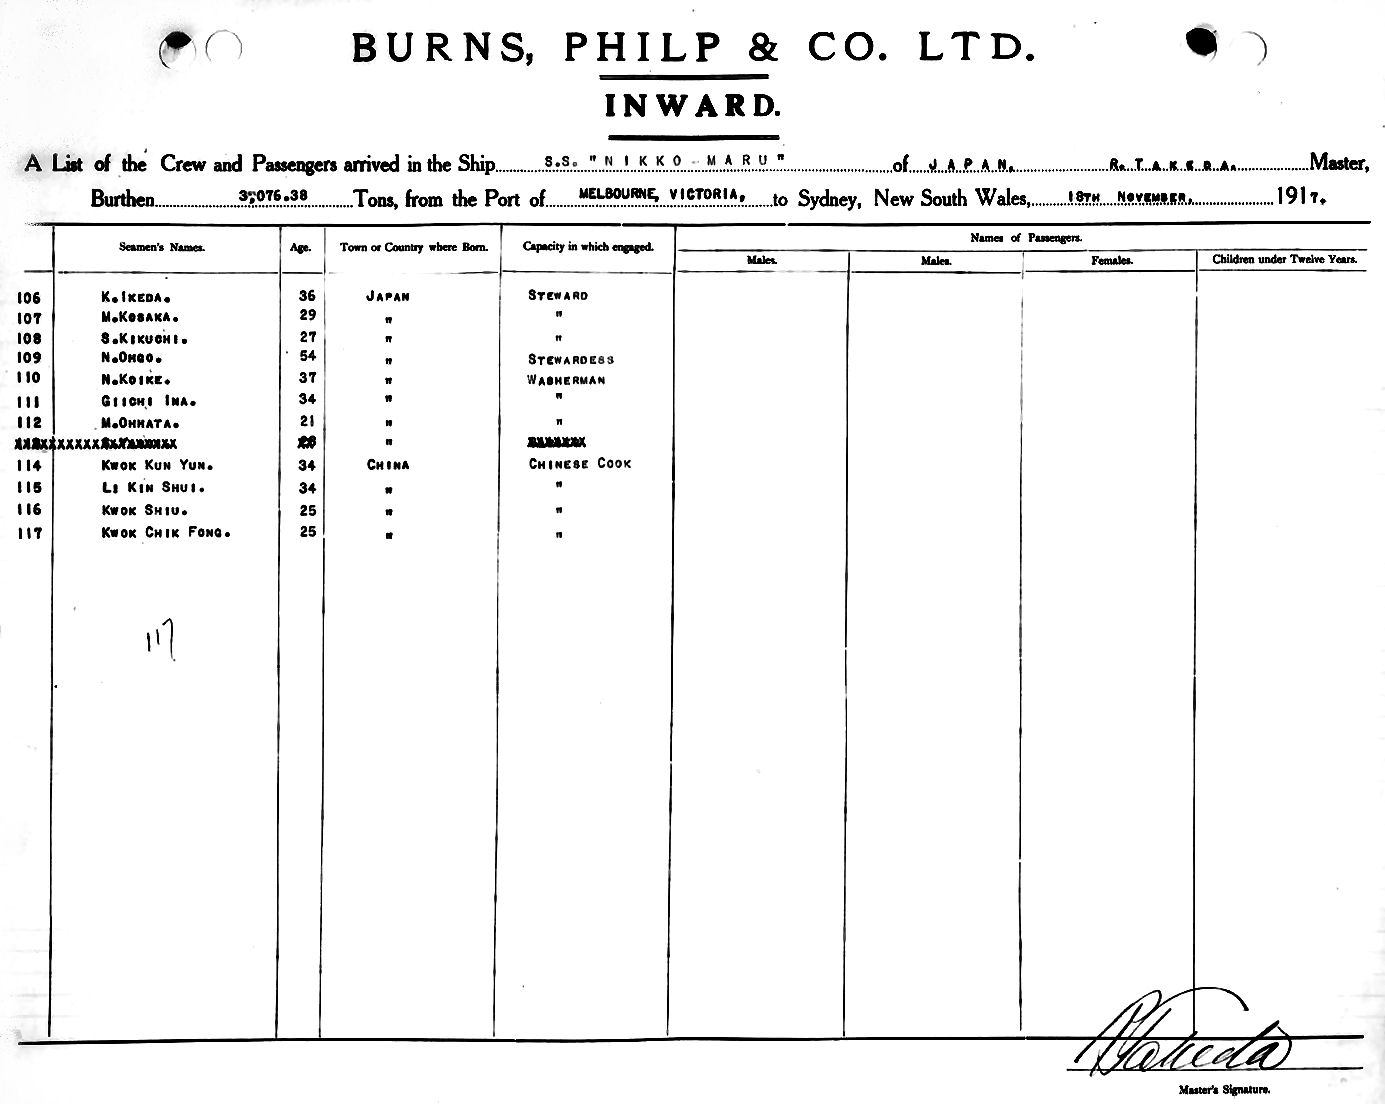 BURNS, PHILP & CO. LTD.
INWARD.
A List of the Crew and Passengers arrived in the Ship S.S. "NIKKO MARU" of JAPAN, R. TAKEDA. Master,
Burthen 3,076.38 Tons, from the Port of MELBOURNE, VICTORIA, to Sydney, New South Wales, 18TH NOVEMBER, 1917.
Seamen's Names. Age. Town or Country where Born. Capacity in which engaged. Names of Passengers.
Males. Males. Females. Children under Twelve Years.
106 K.IKEDA. 36 JAPAN STEWARD
107 M.KOSAKA. 29 " "
108 S.KIKUCHI. 27 " "
109 N.OHGO. 54 " STEWARDESS
110 N.KOIKE. 37 " WASHERMAN
111 GIICHI INA. 34 " "
112 M.OHHATA. 21 " "
"
114 KWOK KUN YUN. 34 CHINA CHINESE COOK
115 LI KIN SHUI. 34 " "
116 KWOK SHIU. 25 " "
117 KWOK CHIK FONG. 25 " "
117
R Takeda
Master's Signature.